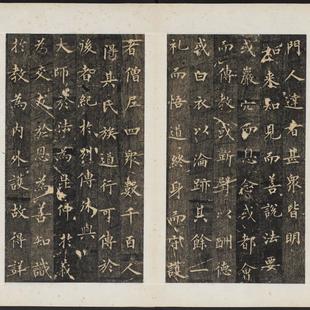 門人達者甚衆皆明
如来知見而善說法要
或巖穴而息念或都會
而傳教或斷臂以酬德
或白衣以淪跡其餘一
礼而悟道終身而守護
者僧尼四衆數千百人
得其氏族道行可傳於
後者紀於別傳休與
大師於法為昆仲於義
為交友於恩為善知識
於教為內外護故得詳